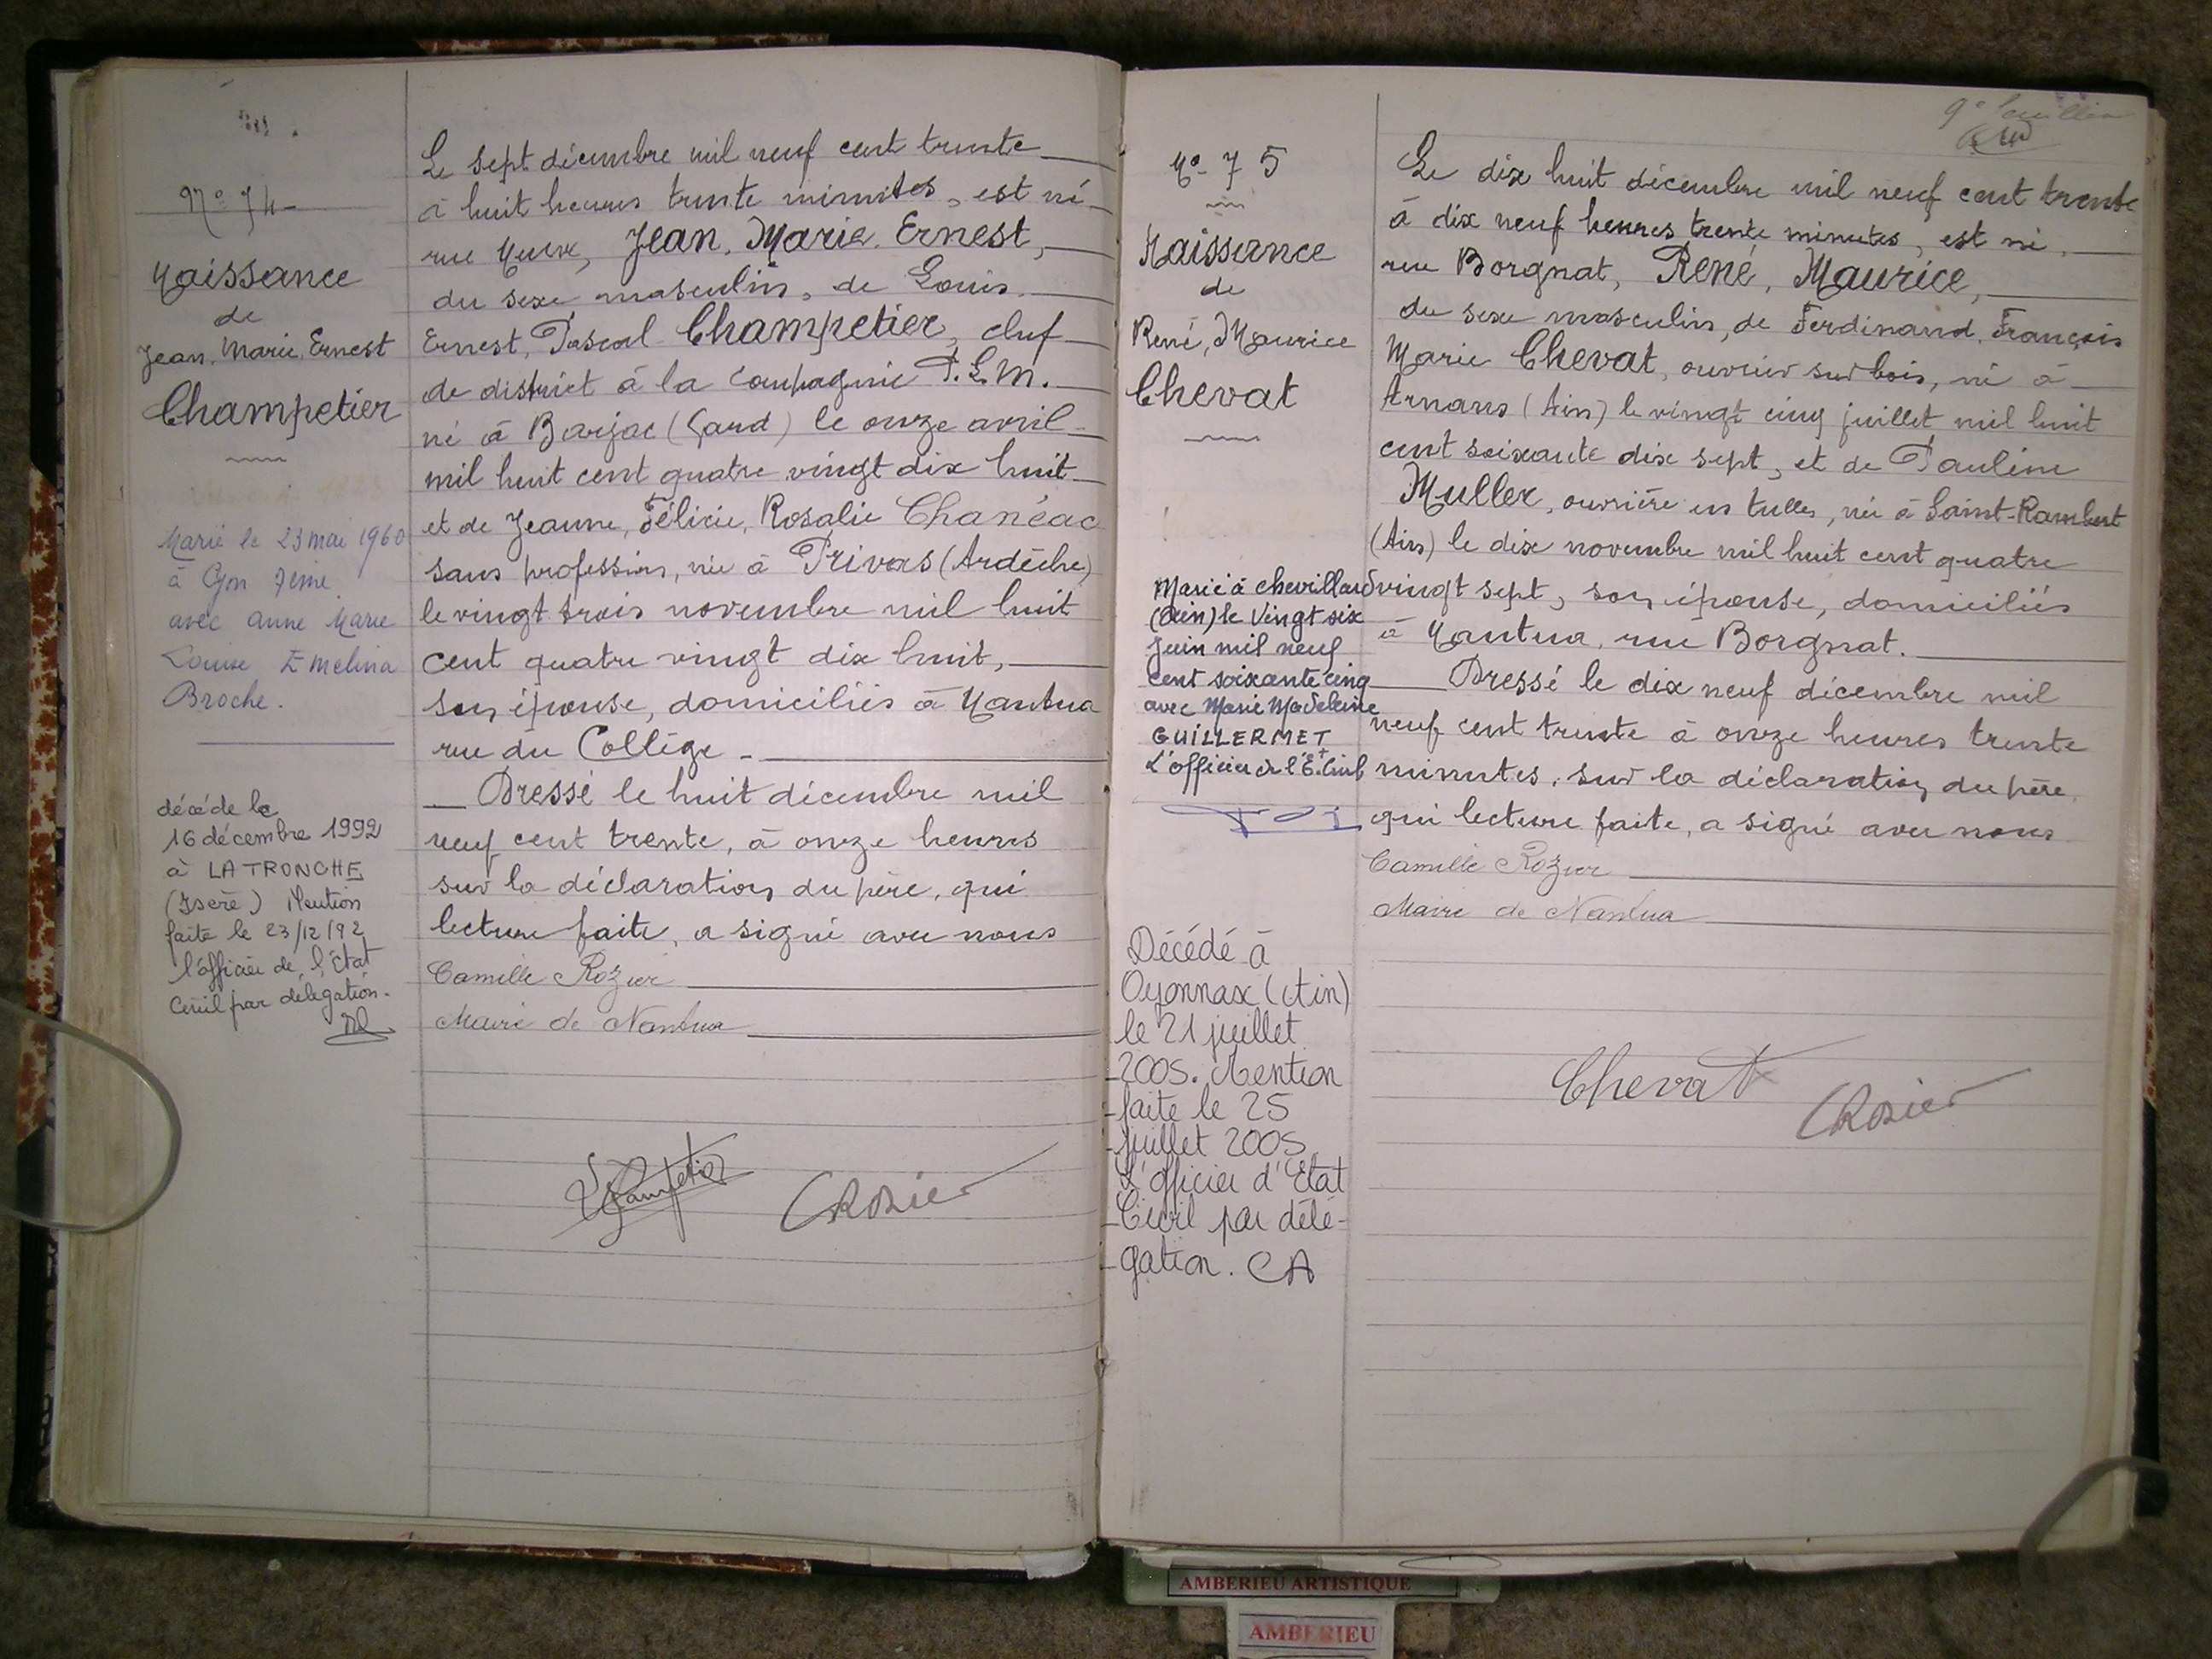 N° 74
Naissance
de
Jean, Marie, Ernest
Champetier
Marié le 23 mai 1960
à Lyon 7ème
avec Anne Marie
Louise Emelina
Broche.
décédé le
16 décembre 1992
à LA TRONCHE
(Isère) Mention
faite le 23/12/92
l'officier de l'État
Civil par délégation.
Le sept décembre mil neuf cent trente
à huit heures trente minutes, est né
rue Neuve, Jean, Marie, Ernest,
du sexe masculin, de Louis
Ernest, Pascal Champetier, chef
de district à la Compagnie P.L.M.
né à Barjac (Gard) le onze avril
mil huit cent quatre vingt dix huit
et de Jeanne, Félicie, Rosalie Chanéac
sans profession, née à Privas (Ardèche)
le vingt trois novembre mil huit
cent quatre vingt dix huit,
son épouse, domiciliés à Nantua
rue du Collège -
Dressé le huit décembre mil
neuf cent trente, à onze heures
sur la déclaration du père, qui
lecture faite, a signé avec nous
Camille Rozier
Maire de Nantua
LChampetier
CRozier
N° 75
Naissance
de
René, Maurice
Chevat
Marié à Chevillard
(Ain) le Vingt six
Juin mil neuf
cent soixante cinq
avec Marie Madeleine
GUILLERMET
L'officier de l'É. Civil
Décédé à
Oyonnax (Ain)
le 21 juillet
2005. Mention
faite le 25
juillet 2005.
L'officier d'Etat
Civil par délé-
gation. CA
9e feuillet
Le dix huit décembre mil neuf cent trente
à dix neuf heures trente minutes, est né,
rue Borgnat, René, Maurice,
du sexe masculin, de Ferdinand, François
Marie Chevat, ouvrier sur bois, né à
Arnans (Ain) le vingt cinq juillet mil huit
cent soixante dix sept, et de Pauline
Muller, ouvrière en tulles, née à Saint-Rambert
(Ain) le dix novembre mil huit cent quatre
vingt sept, son épouse, domiciliés
à Nantua, rue Borgnat.
Dressé le dix neuf décembre mil
neuf cent trente à onze heures trente
minutes, sur la déclaration du père
qui lecture faite, a signé avec nous
Camille Rozier
Maire de Nantua
Chevat
CRozier
AMBERIEU ARTISTIQUE
AMBERIEU